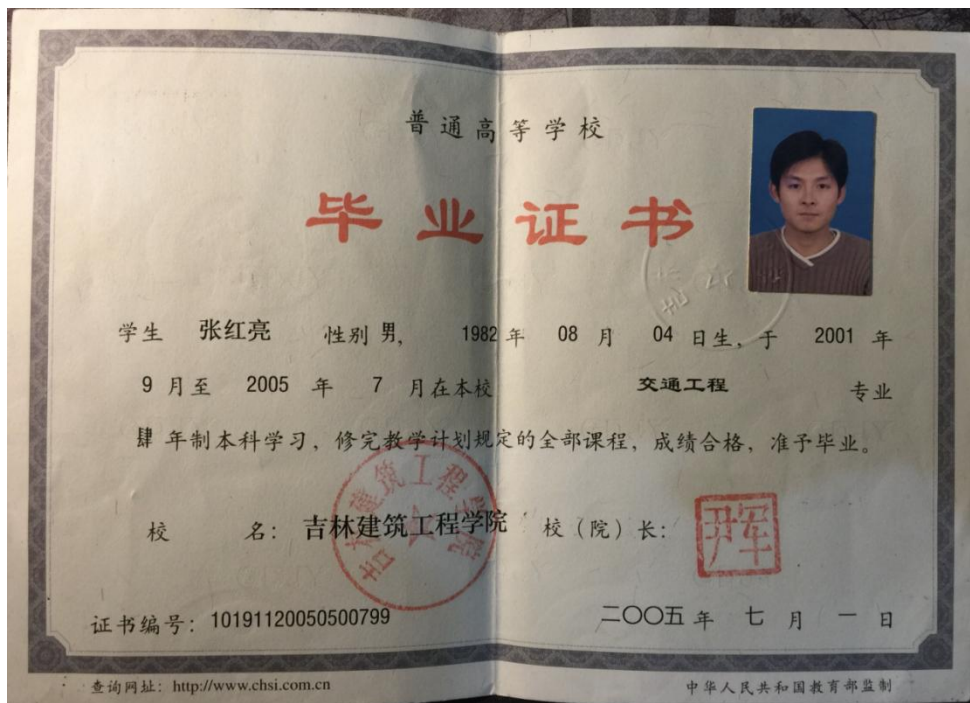 普通高等学校
毕业证书
学生 张红亮 性别 男, 1982 年 08 月 04 日生, 于 2001 年
9 月至 2005 年 7 月在本校 交通工程 专业
肆 年制本科学习, 修完教学计划规定的全部课程, 成绩合格, 准予毕业。
校 名: 吉林建筑工程学院 校(院)长: 尹军
吉林建筑工程学院
证书编号: 10191120050500799 二〇〇五 年 七 月 一 日
查询网址: http://www.chsi.com.cn 中华人民共和国教育部监制